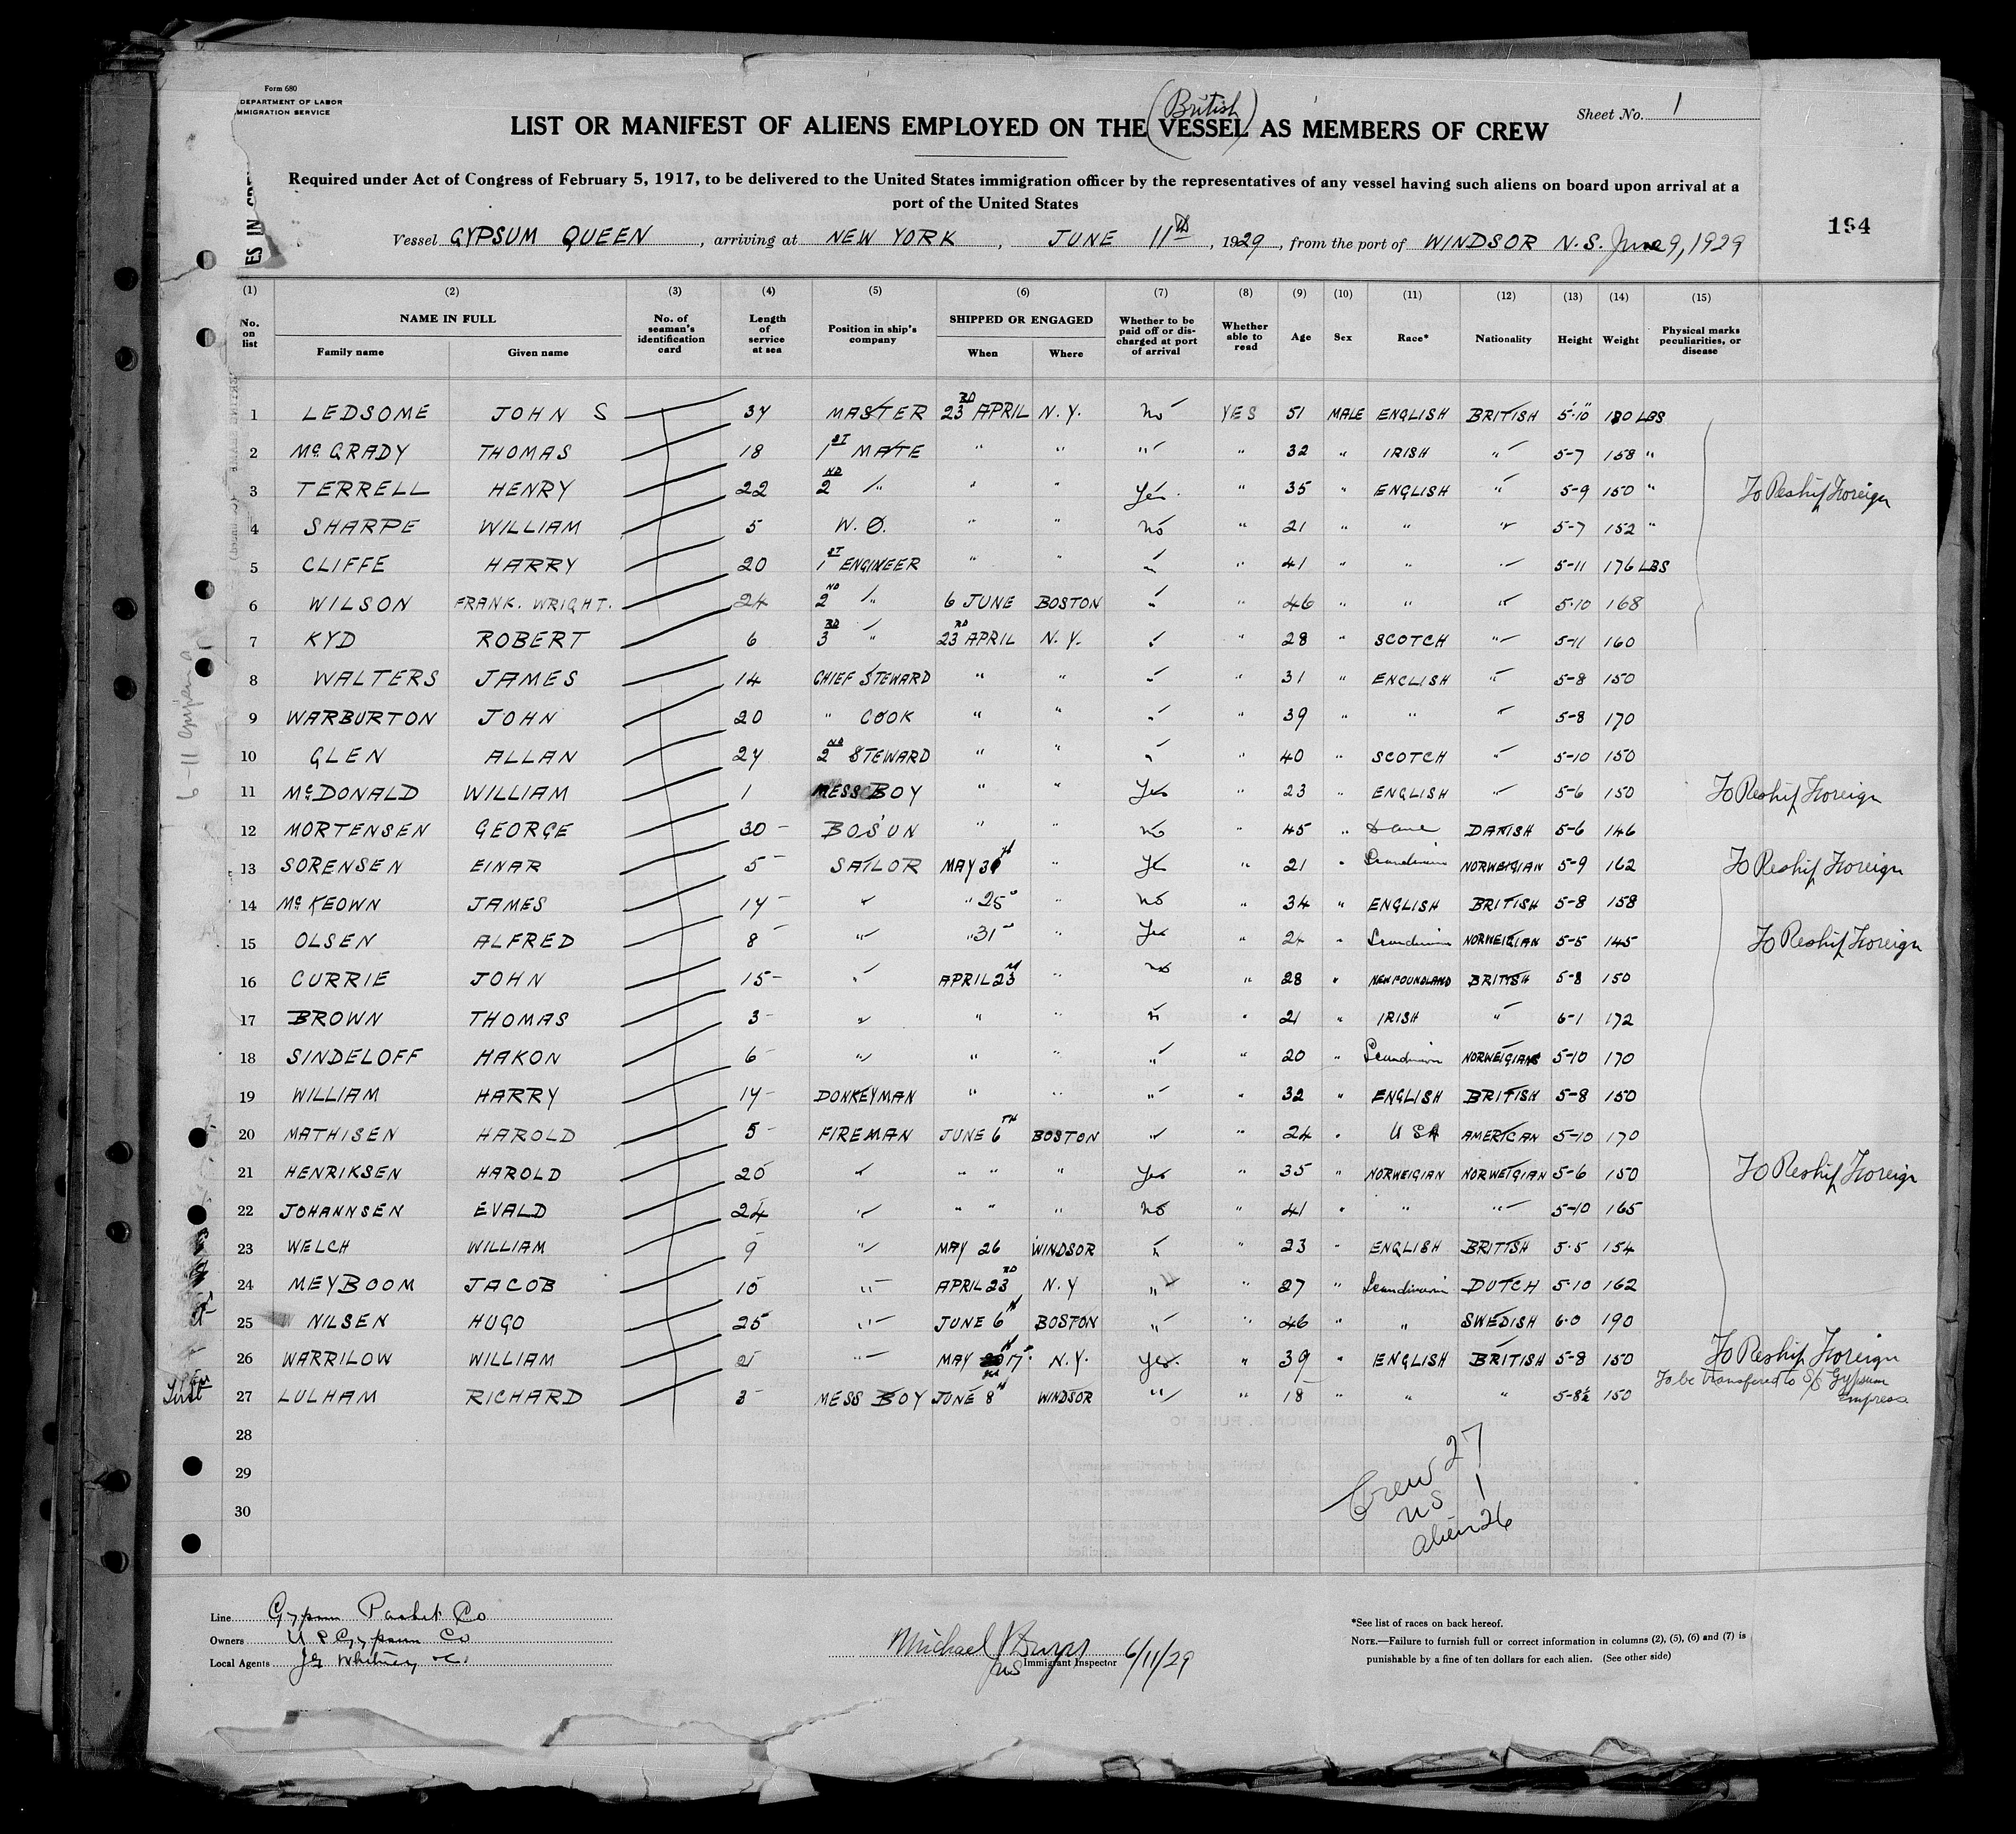 Form 680
DEPARTMENT OF LABOR
IMMIGRATION SERVICE
Sheet No. 1
(British)
LIST OR MANIFEST OF ALIENS EMPLOYED ON THE VESSEL AS MEMBERS OF CREW
Required under Act of Congress of February 5, 1917, to be delivered to the United States immigration officer by the representatives of any vessel having such aliens on board upon arrival at a
port of the United States
194
Vessel GYPSUM QUEEN, arriving at NEW YORK, JUNE 11th, 1929, from the port of WINDSOR N.S. June 9, 1929
(1) (2) (3) (4) (5) (6) (7) (8) (9) (10) (11) (12) (13) (14) (15)
No. on list NAME IN FULL Family name Given name No. of seaman's identification card Length of service at sea Position in ship's company SHIPPED OR ENGAGED When Where Whether to be paid off or discharged at port of arrival Whether able to read Age Sex Race* Nationality Height Weight Physical marks peculiarities, or disease
1 LEDSOME JOHN S 34 MASTER 23RD APRIL N.Y. No YES 51 MALE ENGLISH BRITISH 5'10" 180 LBS
2 McGRADY THOMAS 18 1ST MATE " " " " 32 " IRISH " 5-7 158 "
3 TERRELL HENRY 22 2ND " " " Yes " 35 " ENGLISH " 5-9 150 " To Reship Foreign
4 SHARPE WILLIAM 5 W.O. " " No " 21 " " " 5-7 152 "
5 CLIFFE HARRY 20 1ST ENGINEER " " " " 41 " " " 5-11 176 LBS
6 WILSON FRANK. WRIGHT. 24 2ND " 6 JUNE BOSTON " " 46 " " " 5-10 168
7 KYD ROBERT 6 3RD " 23RD APRIL N.Y. " " 28 " SCOTCH " 5-11 160
8 WALTERS JAMES 14 CHIEF STEWARD " " " " 31 " ENGLISH " 5-8 150
9 WARBURTON JOHN 20 " COOK " " " " 39 " " " 5-8 170
10 GLEN ALLAN 24 2ND STEWARD " " " " 40 " SCOTCH " 5-10 150
11 McDONALD WILLIAM 1 MESS BOY " " Yes " 23 " ENGLISH " 5-6 150 To Reship Foreign
12 MORTENSEN GEORGE 30 BOS'UN " " No " 45 " Dane DANISH 5-6 146
13 SORENSEN EINAR 5 SAILOR MAY " Yes " 21 " NORWEGIAN 5-9 162 To Reship Foreign
14 McKEOWN JAMES 14 " " 25 " No " 34 " ENGLISH BRITISH 5-8 158
15 OLSEN ALFRED 8 " " 31 " Yes " 24 " NORWEIGIAN 5-5 145 To Reship Foreign
16 CURRIE JOHN 15 " APRIL 23RD " No " 28 " NEWFOUNDLAND BRITISH 5-8 150
17 BROWN THOMAS 3 " " " " " 21 " IRISH " 6-1 172
18 SINDELOFF HAKON 6 " " " " " 20 " NORWEIGIAN 5-10 170
19 WILLIAM HARRY 14 DONKEYMAN " " " " 32 " ENGLISH BRITISH 5-8 150
20 MATHISEN HAROLD 5 FIREMAN JUNE 6TH BOSTON " " 24 " USA AMERICAN 5-10 170
21 HENRIKSEN HAROLD 20 " " " " Yes " 35 " NORWEIGIAN NORWEIGIAN 5-6 150 To Reship Foreign
22 JOHANNSEN EVALD 24 " " " " No " 41 " " " 5-10 165
23 WELCH WILLIAM 9 " MAY 26 WINDSOR " " 23 " ENGLISH BRITISH 5-5 154
24 MEYBOOM JACOB 10 " APRIL 23RD N.Y " " 27 " Scandinavian DUTCH 5-10 162
25 NILSEN HUGO 25 " JUNE 6th BOSTON " " 46 " " SWEDISH 6-0 190
26 WARRILOW WILLIAM " MAY 17th N.Y. Yes. " 39 " ENGLISH BRITISH 5-8 150 To Reship Foreign
27 LULHAM RICHARD 3 MESS BOY JUNE 8th WINDSOR " " 18 " " " 5-8½ 150 To be transfered to S/S Gypsum Empress
28
29
30
Crew 27
US 1
alien 26
Line Gypsum Packet Co
Owners U S Gypsum Co
Local Agents J. Whitney & Co.
Michael J
Immigrant Inspector 6/11/29
*See list of races on back hereof.
NOTE.—Failure to furnish full or correct information in columns (2), (5), (6) and (7) is
punishable by a fine of ten dollars for each alien. (See other side)